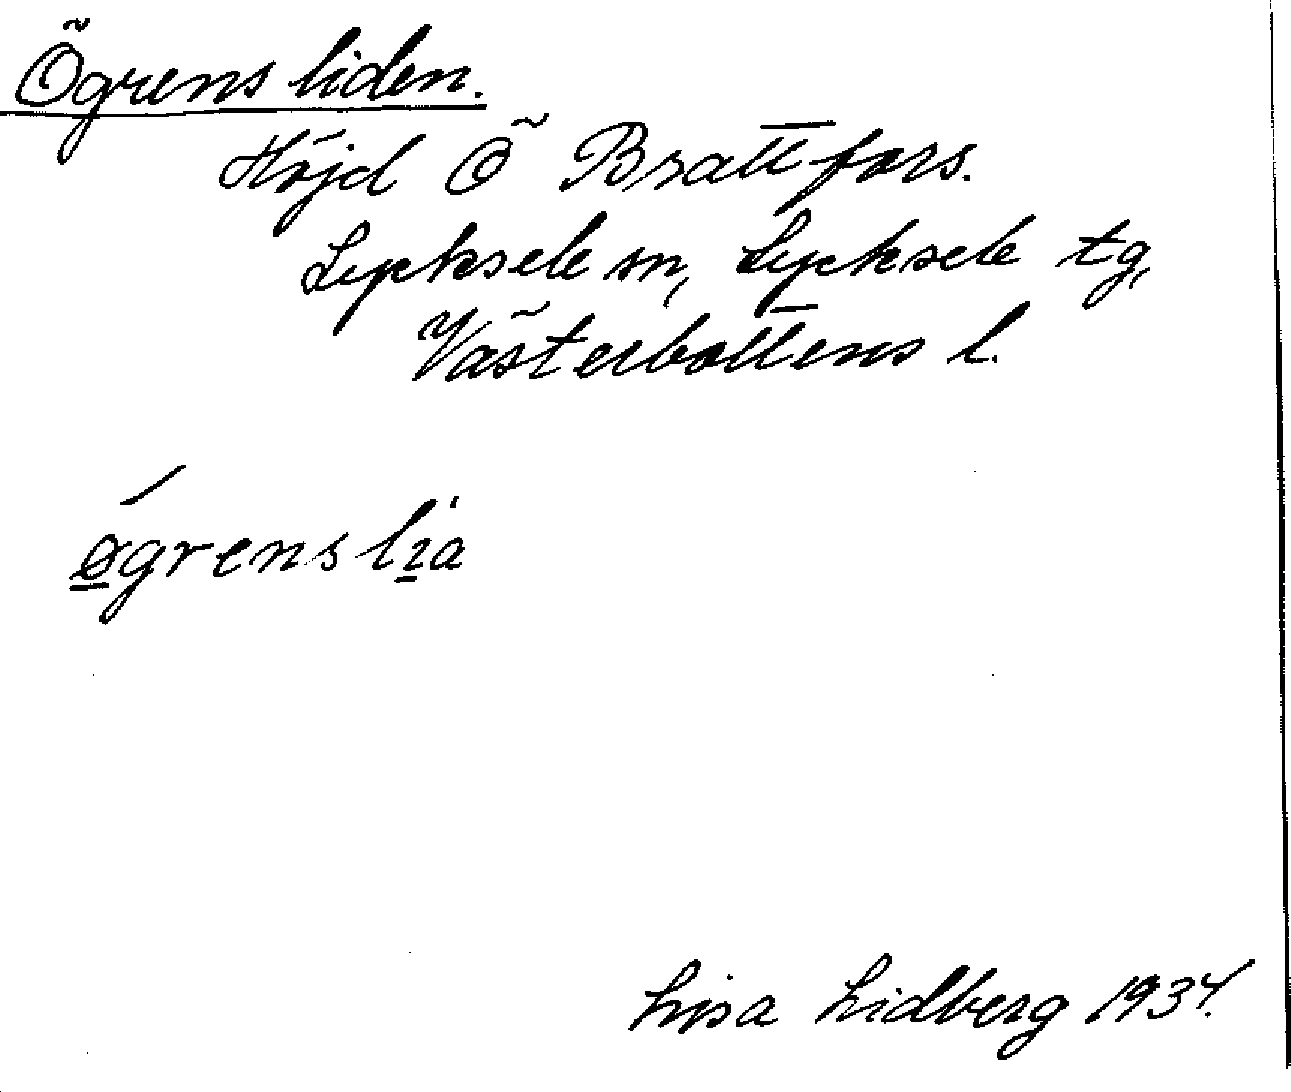 Ögrensliden.
Höjd Ö Brattfors.
Lycksele sn, Lycksele tg,
Västerbottens l.
øgrenslıa
Lisa Lidberg 1934.